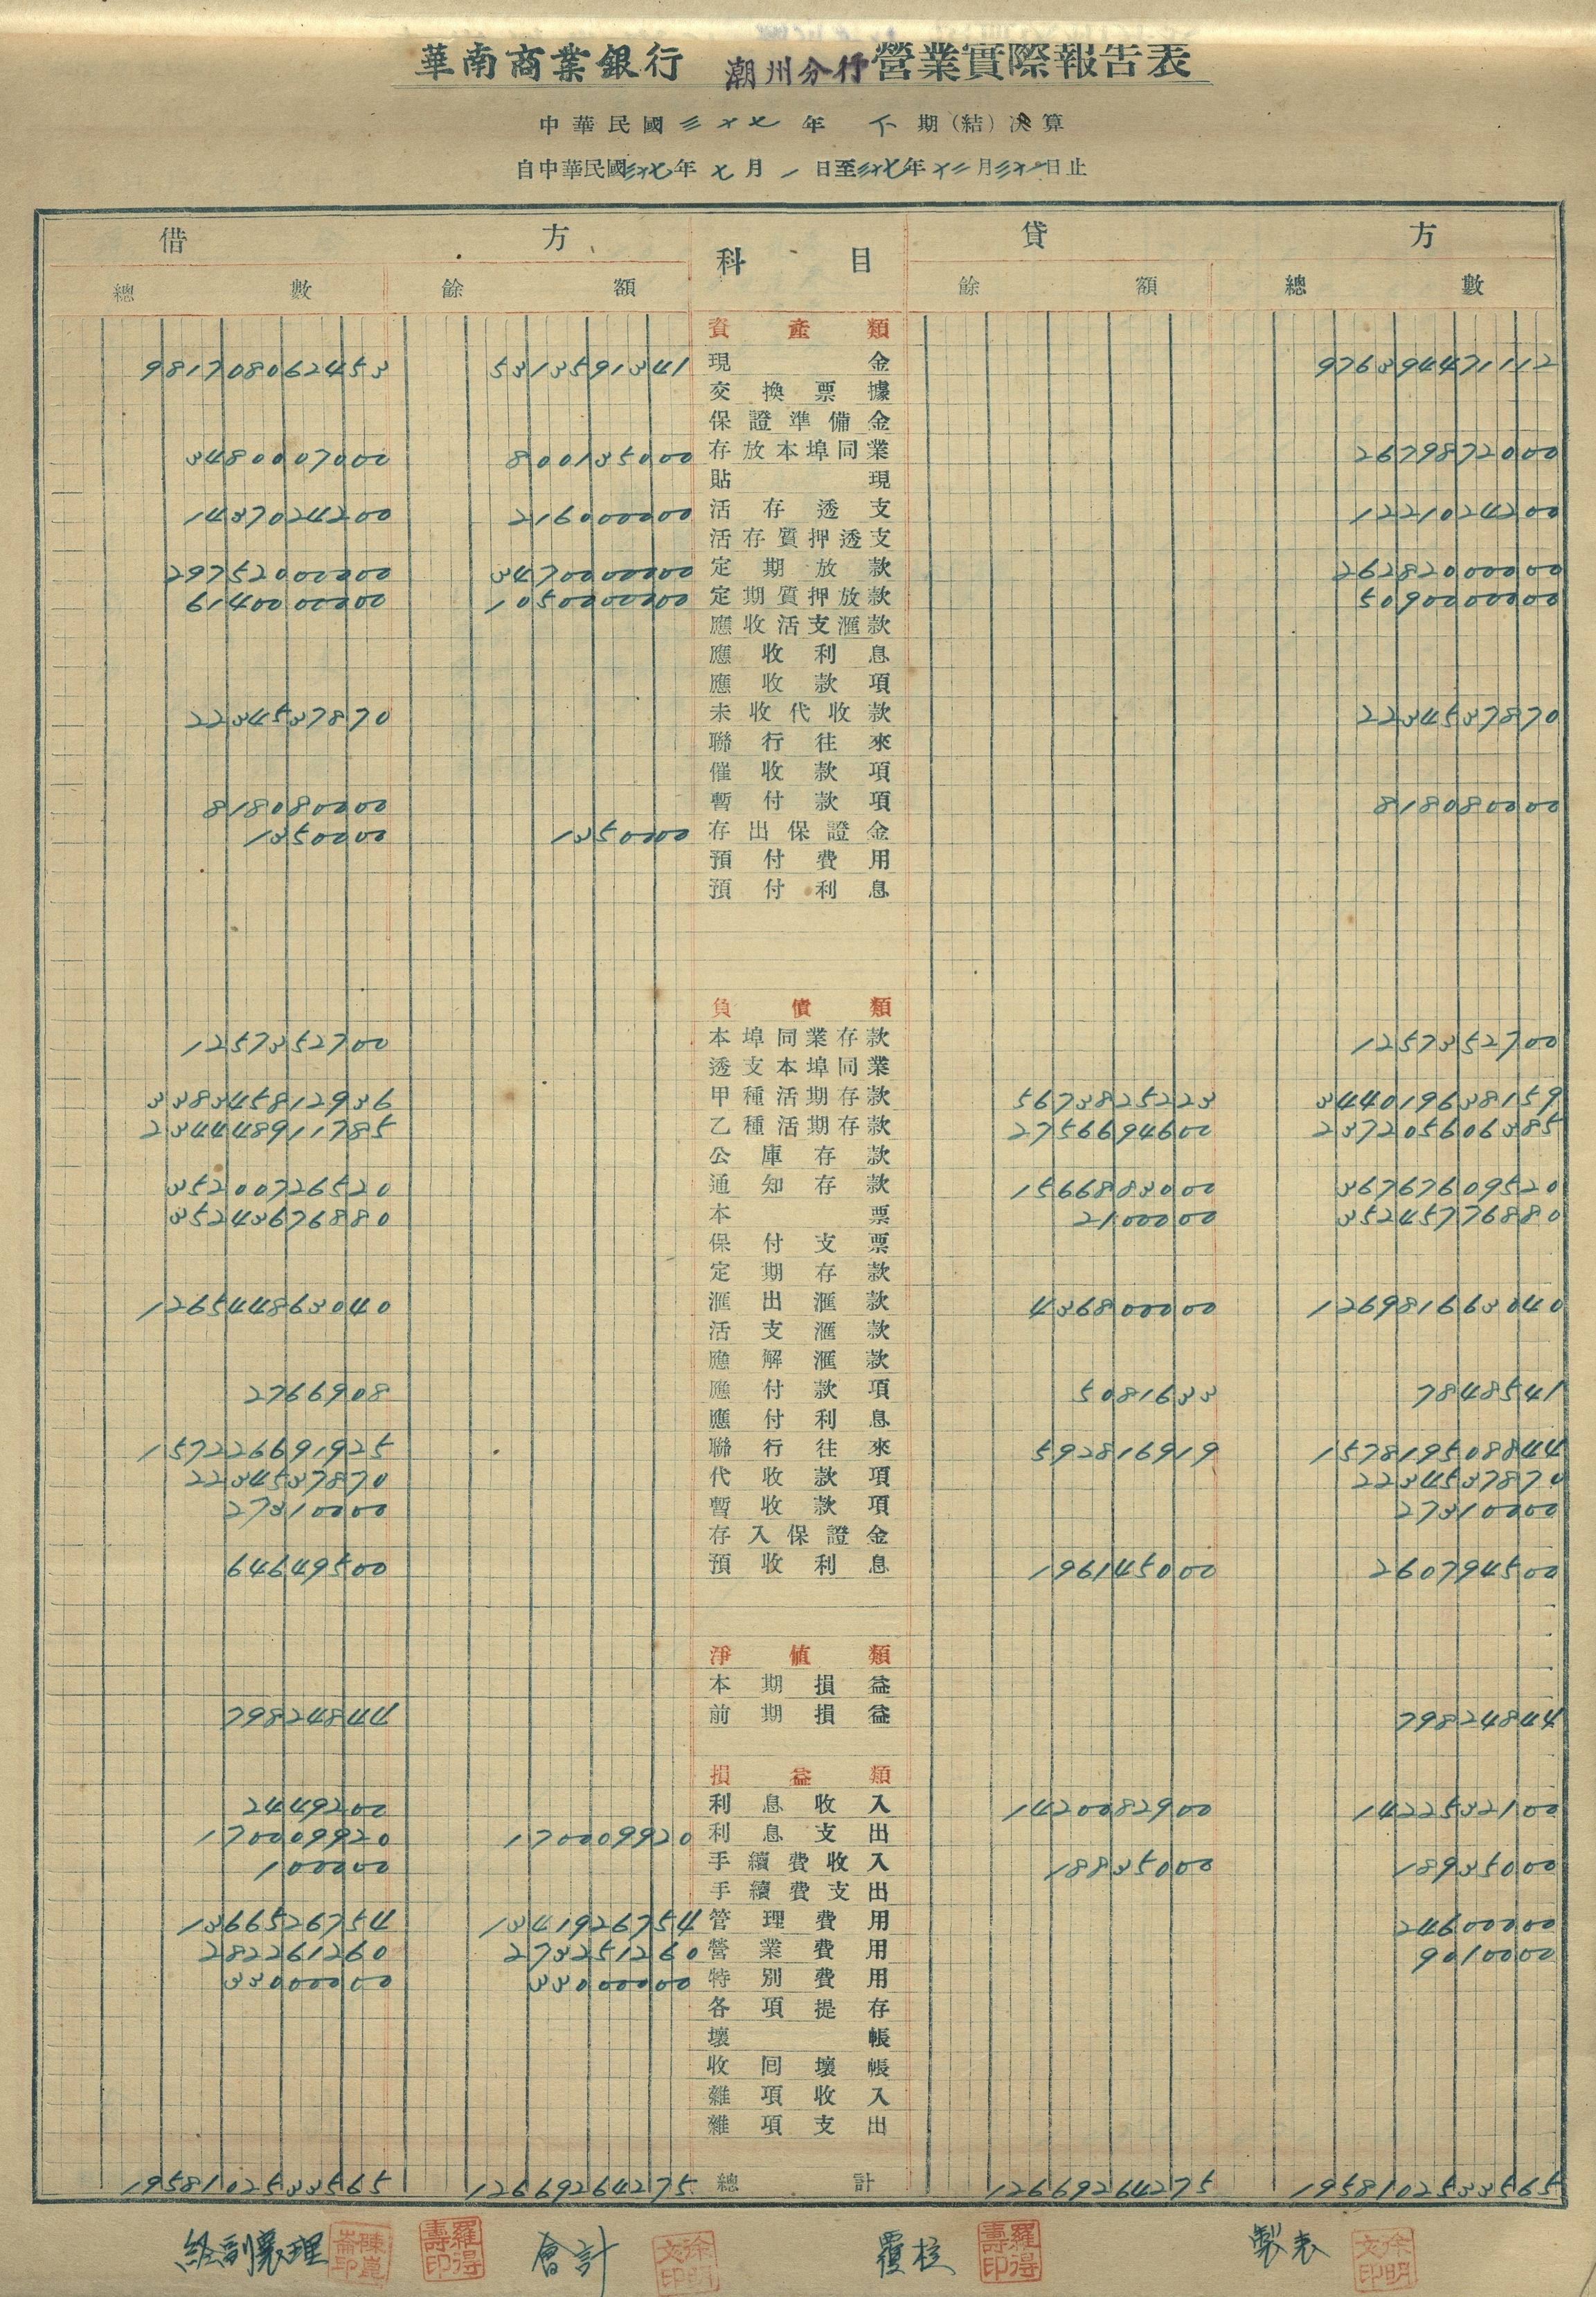 華南商業銀行 潮州分行 營業實際報告表
中華民國三十七年 下期(結)決算
自中華民國三十七年七月一日至三十七年十二月三十一日止
借方 科目 貸方
總數 餘額 餘額 總數
資產類
981708062453 5313591341 現金 976394471112
交換票據
保證準備金
3480007000 800135000 存放本埠同業 2679872000
貼現
1437024200 216000000 活存透支 1221024200
活存質押透支
29752000000 3470000000 定期放款 26282000000
6140000000 1050000000 定期質押放款 5090000000
應收活支滙款
應收利息
應收款項
2234537870 未收代收款 2234537870
聯行往來
催收款項
818080000 暫付款項 818080000
1350000 1350000 存出保證金
預付費用
預付利息
負債類
1257352700 本埠同業存款 1257352700
透支本埠同業
338345812936 甲種活期存款 5673825223 344019638159
234448911785 乙種活期存款 2756694600 237205606385
公庫存款
35200726520 通知存款 1566883000 36767609520
35243676880 本票 2100000 35245776880
保付支票
定期存款
126544863040 滙出滙款 436800000 126981663040
活支滙款
應解滙款
2766908 應付款項 5081633 7848541
應付利息
157226691925 聯行往來 592816919 157819508844
2234537870 代收款項 2234537870
27310000 暫收款項 27310000
存入保證金
64649500 預收利息 196145000 260794500
淨值類
本期損益
79824844 前期損益 79824844
損益類
2449200 利息收入 1420082900 1422532100
170009920 170009920 利息支出
100000 手續費收入 18835000 18935000
手續費支出
1366526754 1341926754 管理費用 24600000
282261260 273251260 營業費用 9010000
33000000 33000000 特別費用
各項提存
壞帳
收回壞帳
雜項收入
雜項支出
1958102533565 12669264275 總計 12669264275 1958102533565
經副襄理 羅得壽印 會計 覆核 羅得壽印 製表